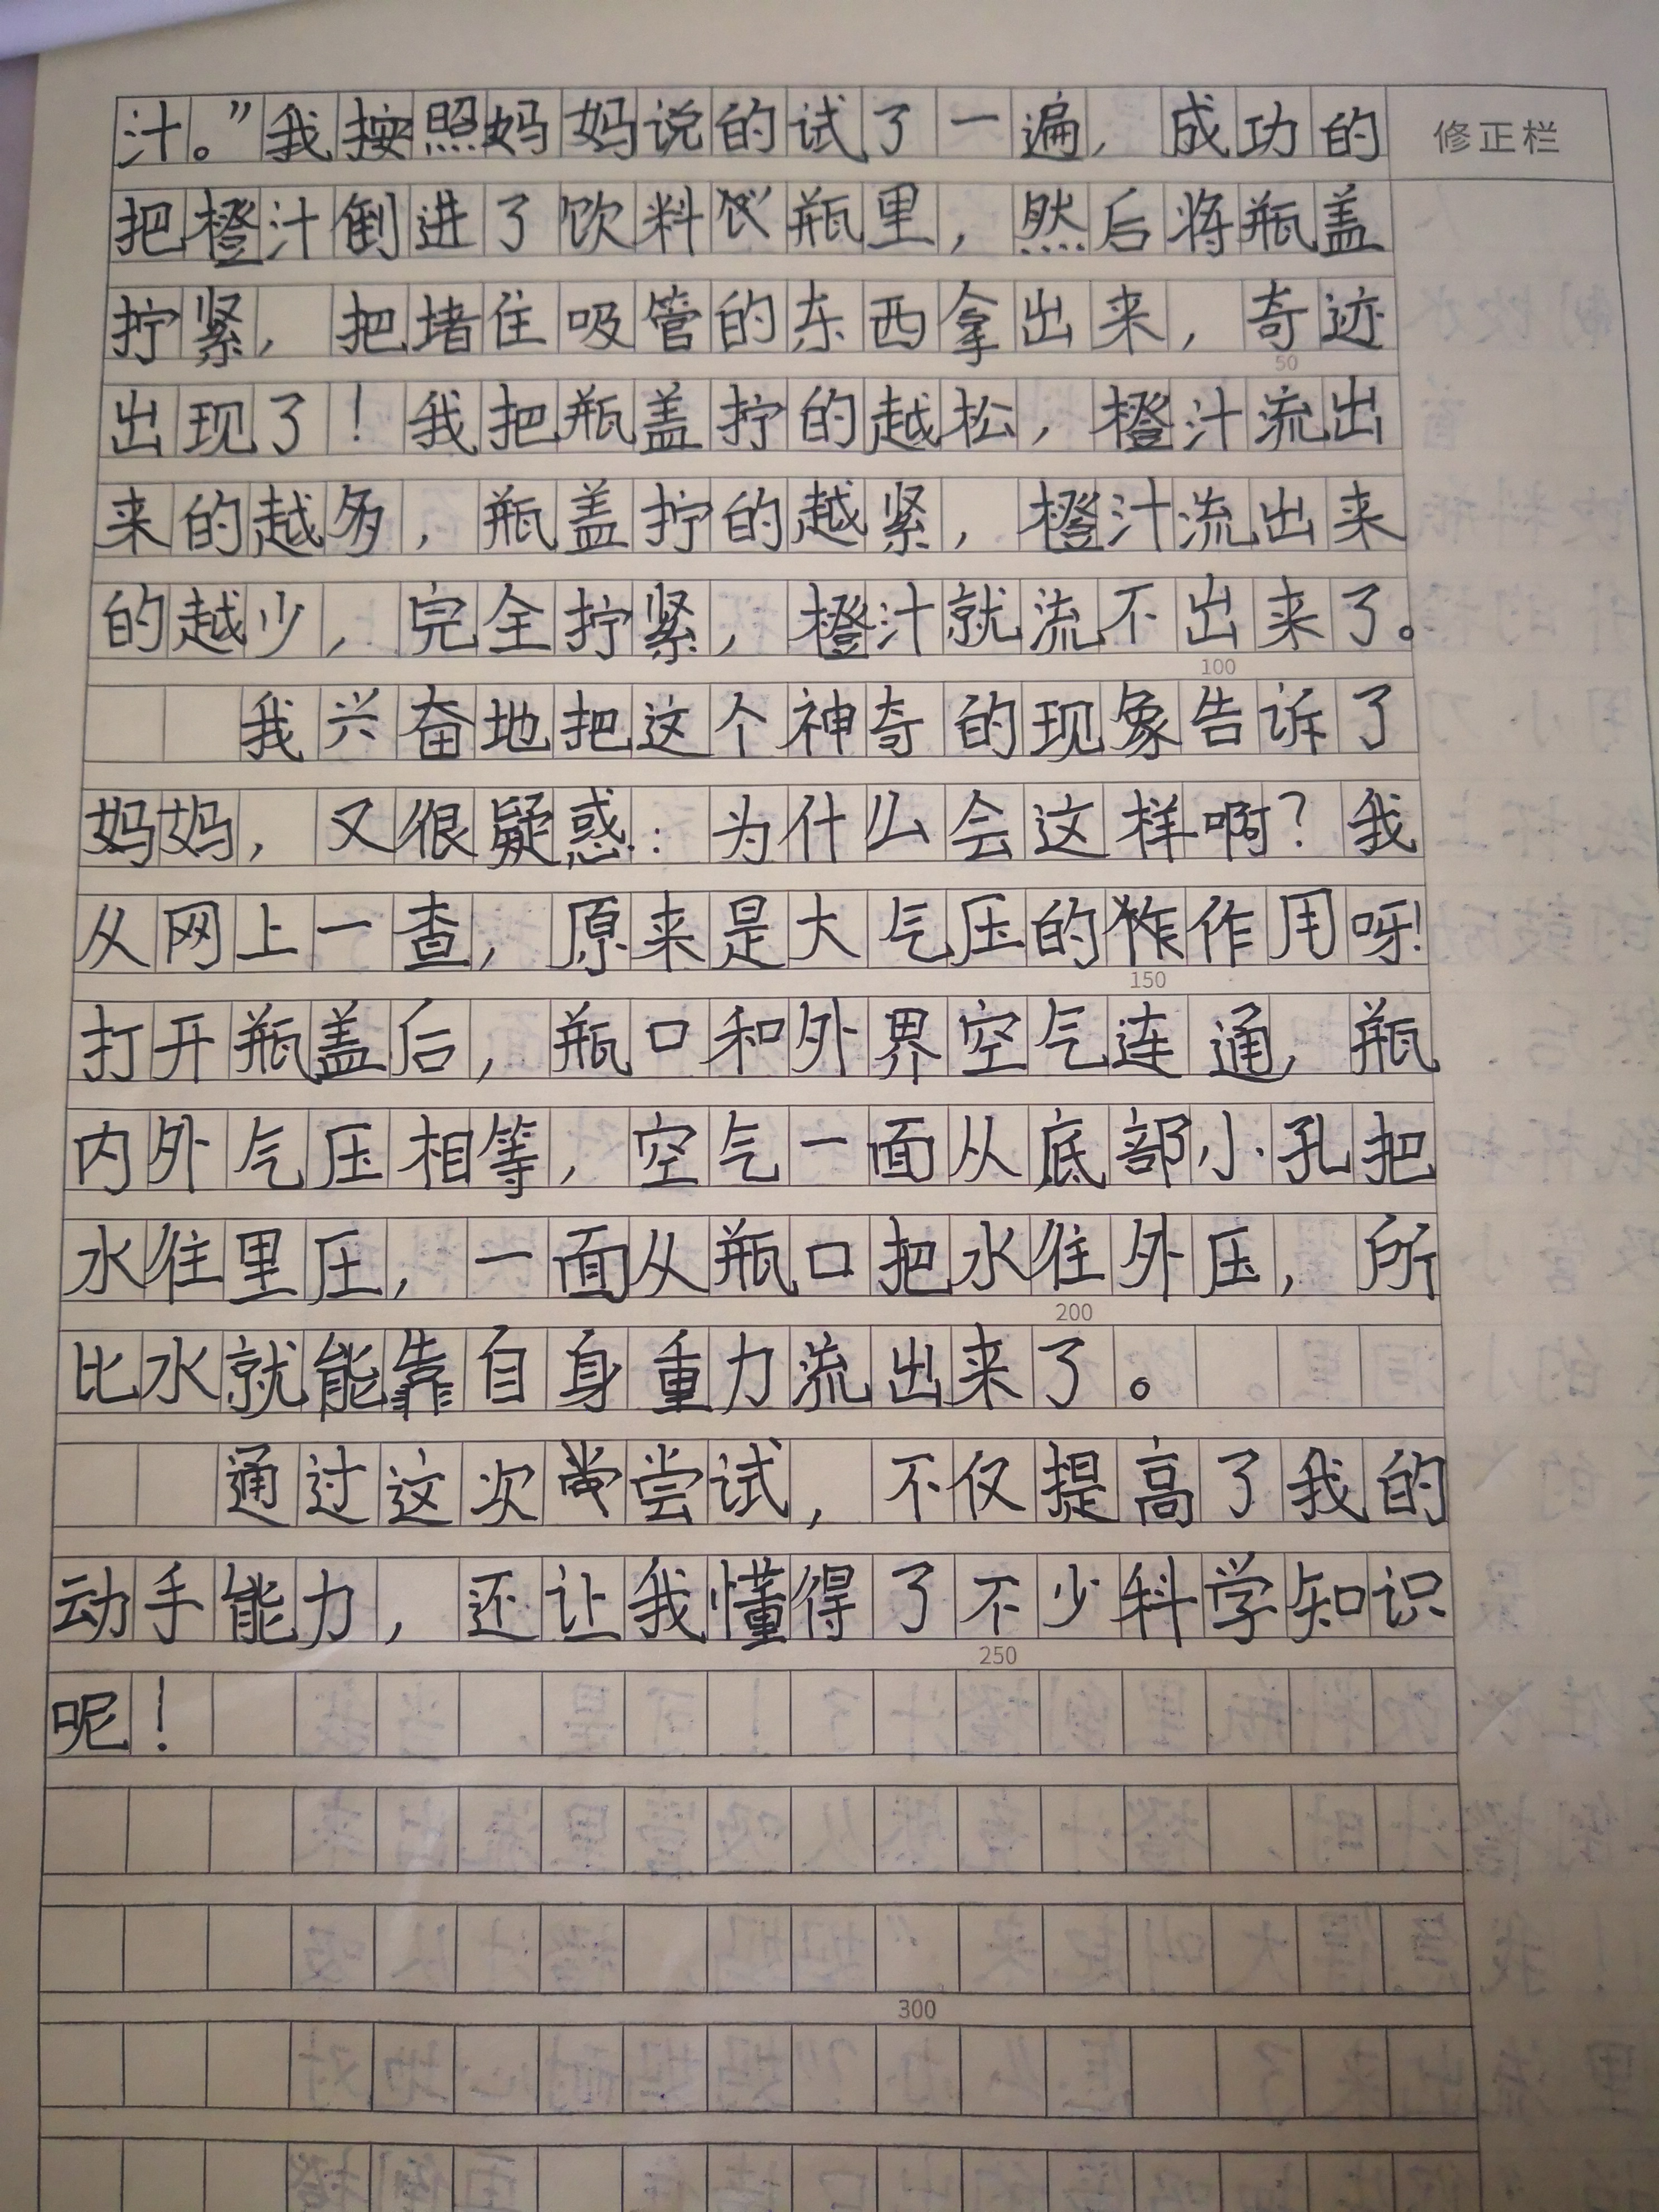 汁。”我按照妈妈说的试了一遍，成功的
修正栏
把橙汁倒进了饮料瓶里，然后将瓶盖
拧紧，把堵住吸管的东西拿出来，奇迹
50
出现了！我把瓶盖拧的越松，橙汁流出
来的越多，瓶盖拧的越紧，橙汁流出来
的越少，完全拧紧，橙汁就流不出来了。
100
我兴奋地把这个神奇的现象告诉了
妈妈，又很疑惑：为什么会这样啊？我
从网上一查，原来是大气压的作用呀！
150
打开瓶盖后，瓶口和外界空气连通，瓶
内外气压相等，空气一面从底部小孔把
水往里压，一面从瓶口把水往外压，所
200
比水就能靠自身重力流出来了。
通过这次尝试，不仅提高了我的
动手能力，还让我懂得了不少科学知识
250
呢！
300